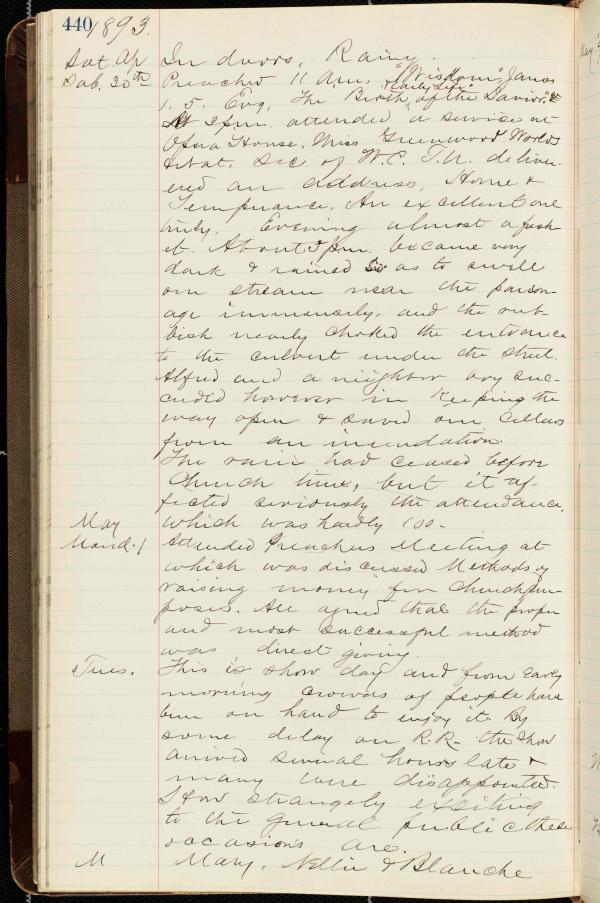 440 1893.
Sat. Ap In doors, Rainy.
Sab. 30th Preached 11 A.M. "Wisdom", James
1. 5. Evg. The Birth & Early Life of the Savior."
At 3 p.m. attended a service at
Opera House. Miss Greenwood World's
Nat. Sec. of W.C.T.U. deliver-
ered an address, Home &
Temperance. An excellent one
truly. Evening almost a fresh
et. About 5 p.m. became very
dark & rained so as to swell
our stream near the parson-
age immensely, and the rub-
bish nearly choked the entrance
to the culvert under the street.
Alfred and a neighbor boy suc-
ceeded however in keeping the
way open & saved our cellars
from an inundation.
The rain had ceased before
Church time, but it af-
fected seriously the attendance,
May which was hardly 100-
Mond. 1 Attended Preachers Meeting at
which was discussed Methods of
raising money for Church pur-
poses. All agreed that the proper
and most successful method
was direct giving.
Tues. This is show day and from early
morning crowds of people have
been on hand to enjoy it. By
some delay on R.R. the show
arrived several hours late &
many were disappointed.
How strangely exciting
to the general public these
occasions are.
M Mary, Nellie & Blanche